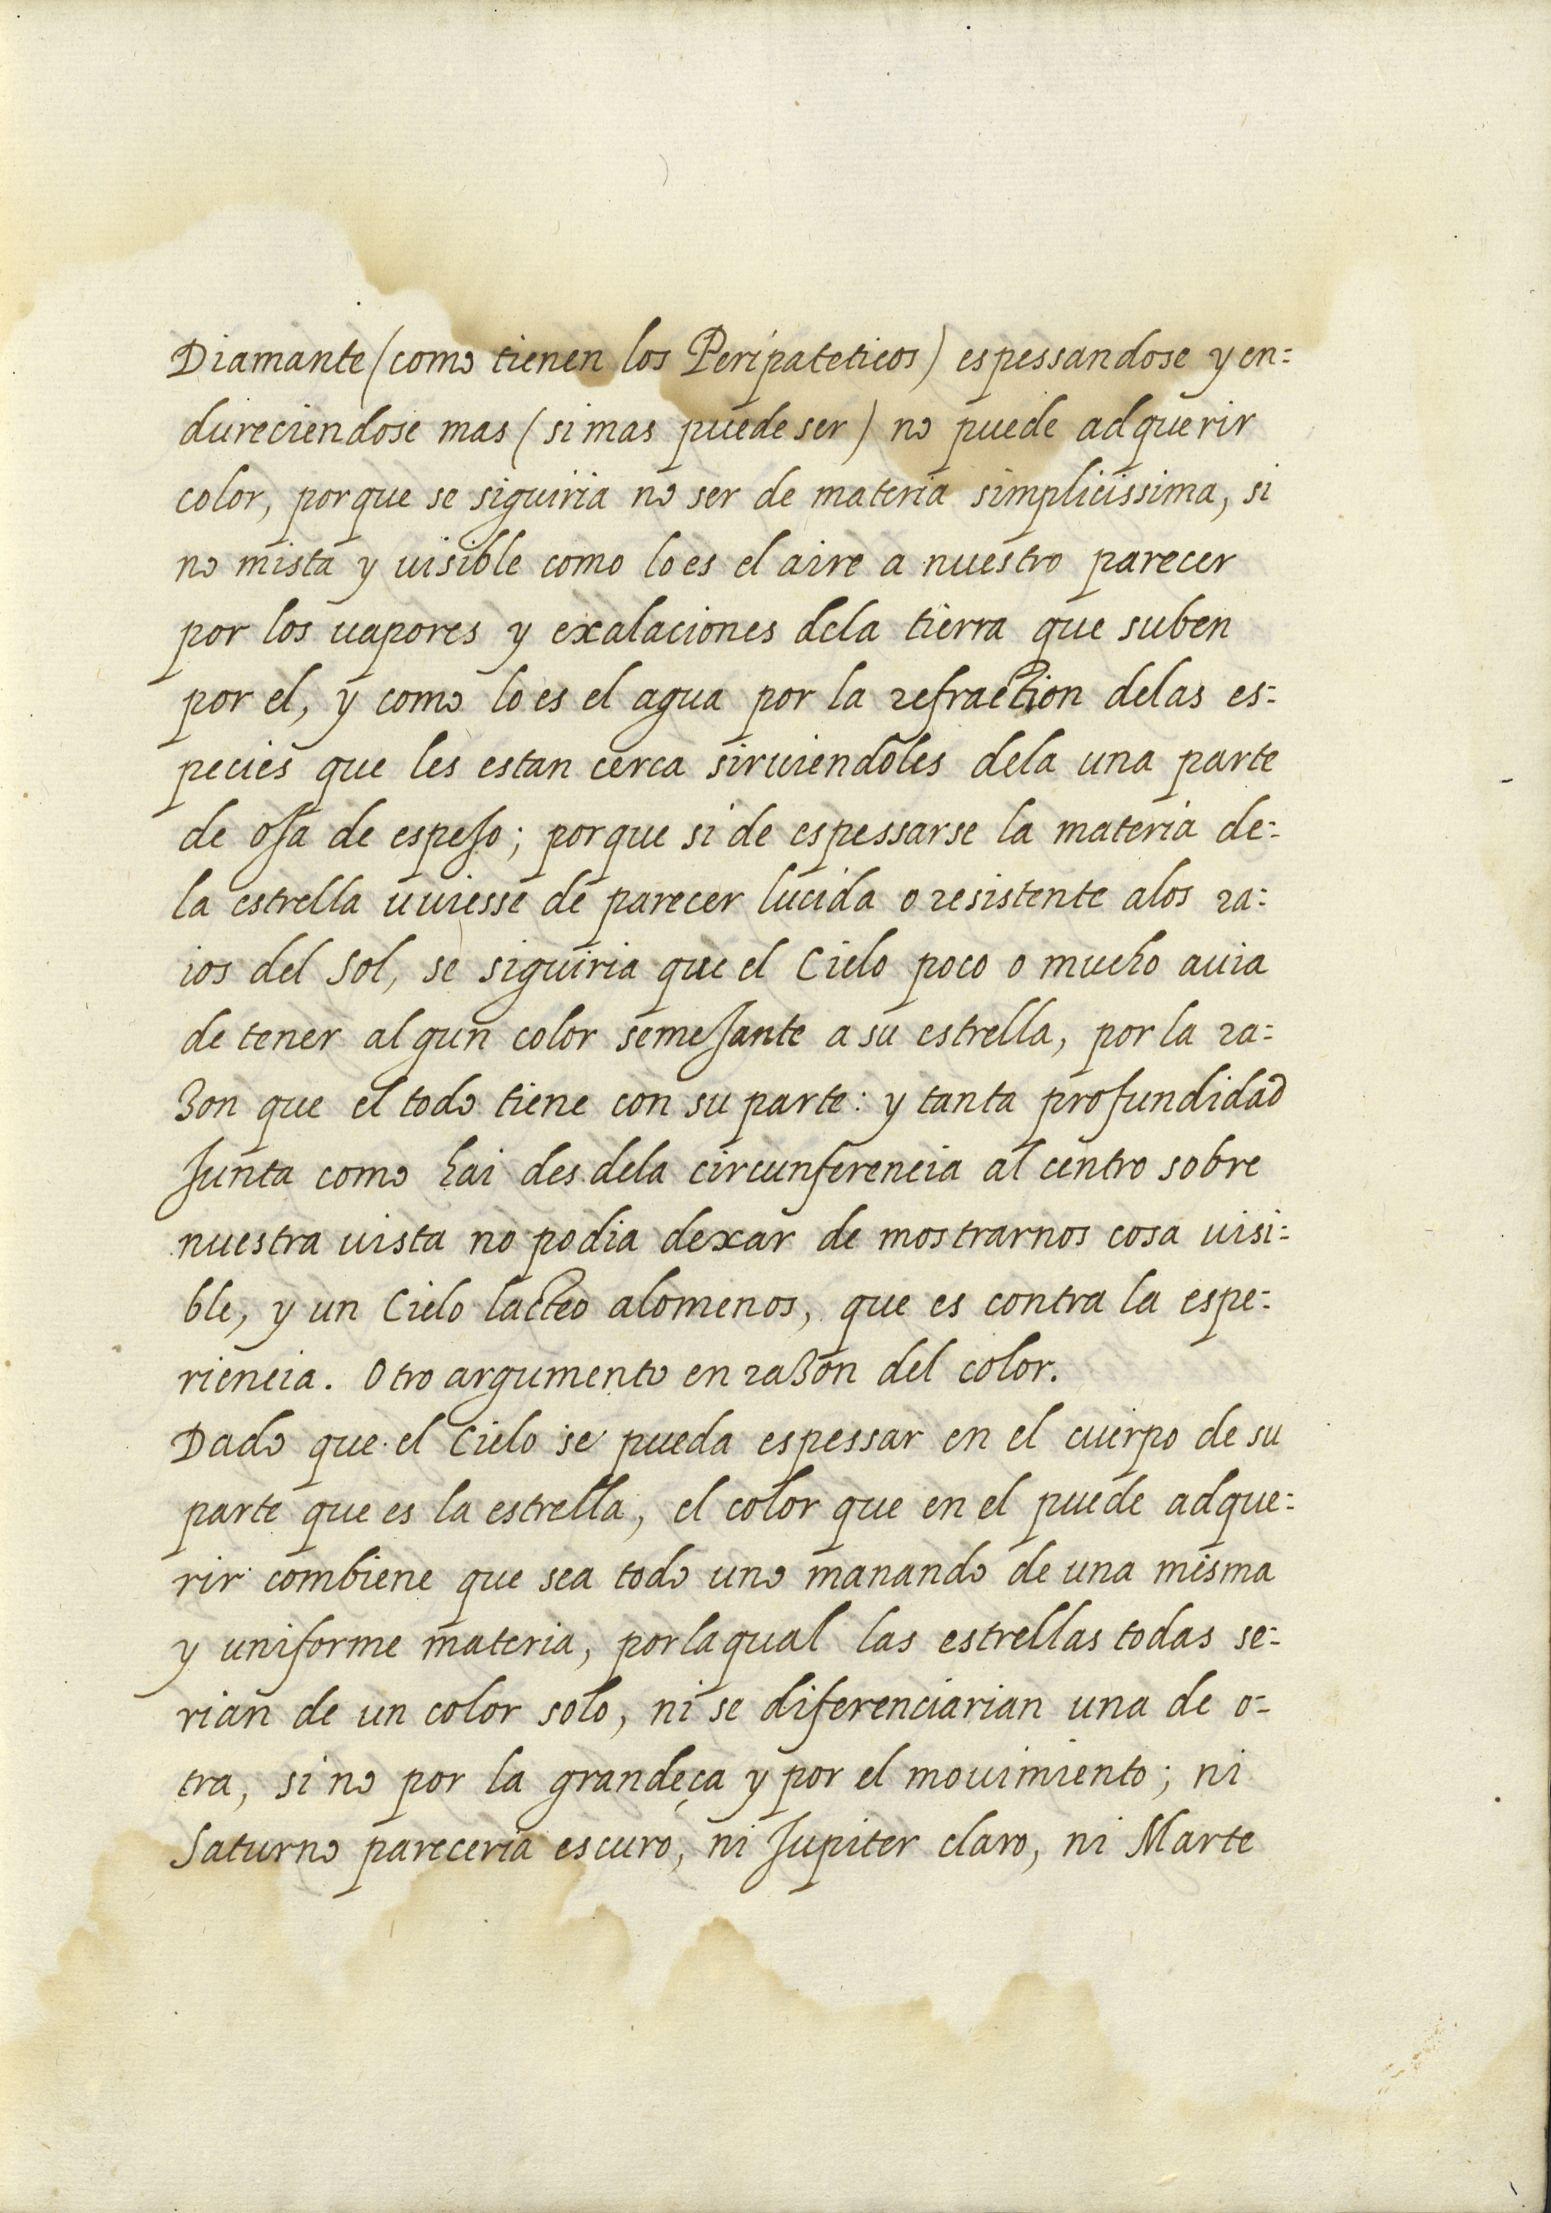 Diamante (como tienen los Peripateticos) espessandose y en=
dureciendose mas (si mas puede ser) no puede adquerir
color, porque se siguiria no ser de materia simplicissima, si
no mista y uisible como lo es el aire a nuestro parecer
por los uapores y exalaciones dela tierra que suben
por el, y como lo es el agua por la refraction delas es=
pecies que les estan cerca siruiendoles dela una parte
de oja de espejo; porque si de espessarse la materia de=
la estrella uuiesse de parecer lucida o resistente alos ra=
ios del Sol, se siguiria que el Cielo poco o mucho auia
de tener algun color semejante a su estrella, por la ra=
zon que el todo tiene con su parte: y tanta profundidad
junta como hai desdela circunferencia al centro sobre
nuestra uista no podia dexar de mostrarnos cosa uisi=
ble, y un Cielo lacteo alomenos, que es contra la espe=
riencia. Otro argumento en razon del color.
Dado que el Cielo se pueda espessar en el cuerpo de su
parte que es la estrella, el color que en el puede adque=
rir combiene que sea todo uno manando de una misma
y uniforme materia, por la qual las estrellas todas se=
rian de un color solo, ni se diferenciarian una de o=
tra, si no por la grandeça y por el mouimiento; ni
Saturno pareceria escuro, ni Jupiter claro, ni Marte